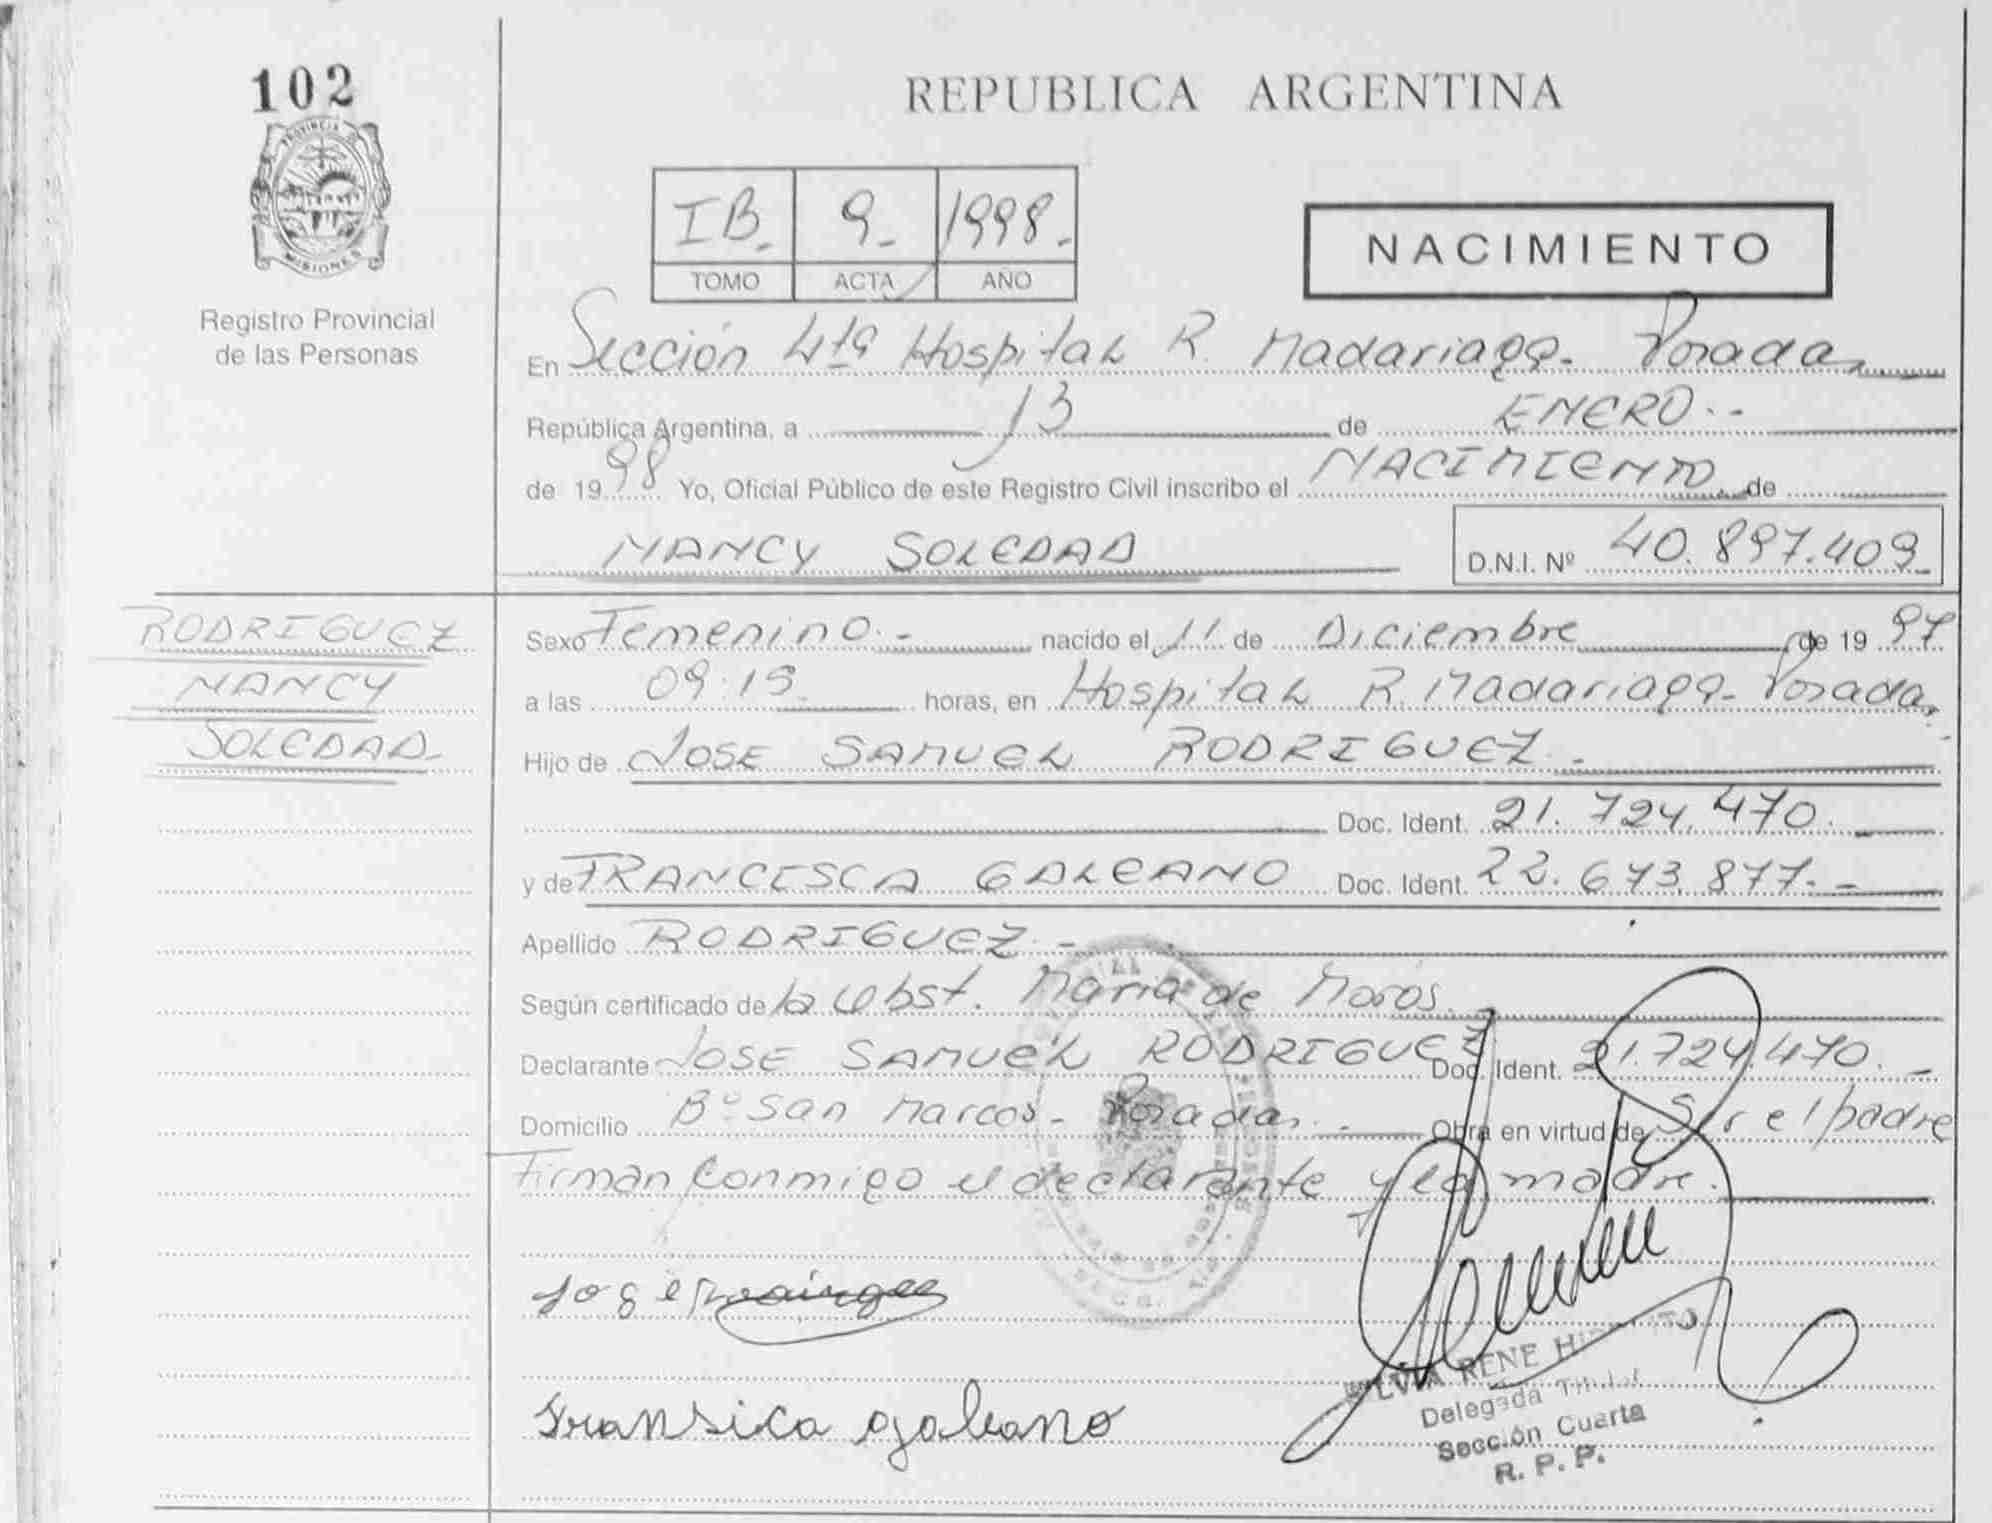 102
REPUBLICA ARGENTINA
PROVINCIA DE
MISIONES
Registro Provincial
de las Personas
IB.- 9- 1998.-
TOMO ACTA AÑO
NACIMIENTO
En Sección 4ta Hospital R. Madariaga- Posadas
República Argentina, a 13 de ENERO.-
de 1998 Yo, Oficial Público de este Registro Civil inscribo el NACIMIENTO de
NANCY SOLEDAD D.N.I. Nº 40.897.409
RODRIGUEZ
NANCY
SOLEDAD-
Sexo Femenino.- nacido el 11 de Diciembre de 1997
a las 09:15 horas, en Hospital R. Madariaga- Posadas
Hijo de JOSE SAMUEL RODRIGUEZ.-
Doc. Ident. 21.724.470.
y de FRANCISCA GALEANO Doc. Ident. 22.673.877.-
Apellido RODRIGUEZ.-
Según certificado de la Obst. Maria de Moros.
Declarante JOSE SAMUEL RODRIGUEZ Doc. Ident. 21.724.470.-
Domicilio Bº San Marcos- Posadas.- Obra en virtud de Ser el padre
Firman conmigo el declarante y la madre.
Fransica galeano
RENE
Delegada Titular
Sección Cuarta
R. P. P.